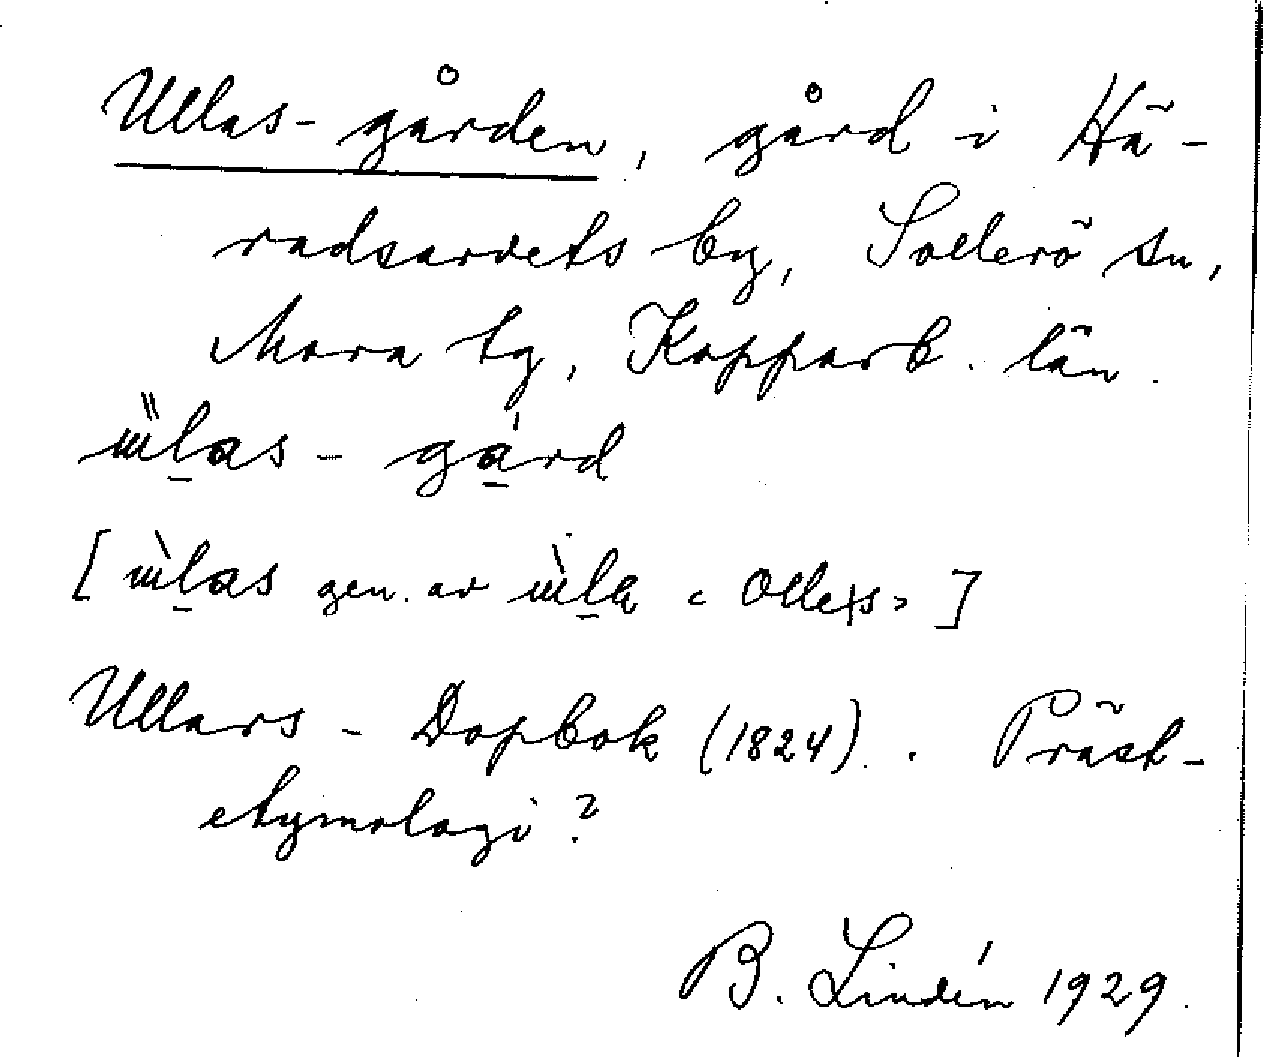 Ullas-gården, gård i Hä-
radsarvets by, Sollerö sn,
Mora tg, Kopparb. län.
-gård
[ gen. av ‹Olles› ]
Ullars - Dopbok (1824). . Präst-
etymologi?
B. Lindén 1929.